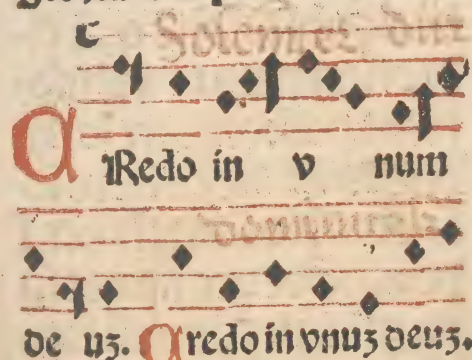 CRedo in v num
de uʒ. Credo in vnuʒ deuʒ.